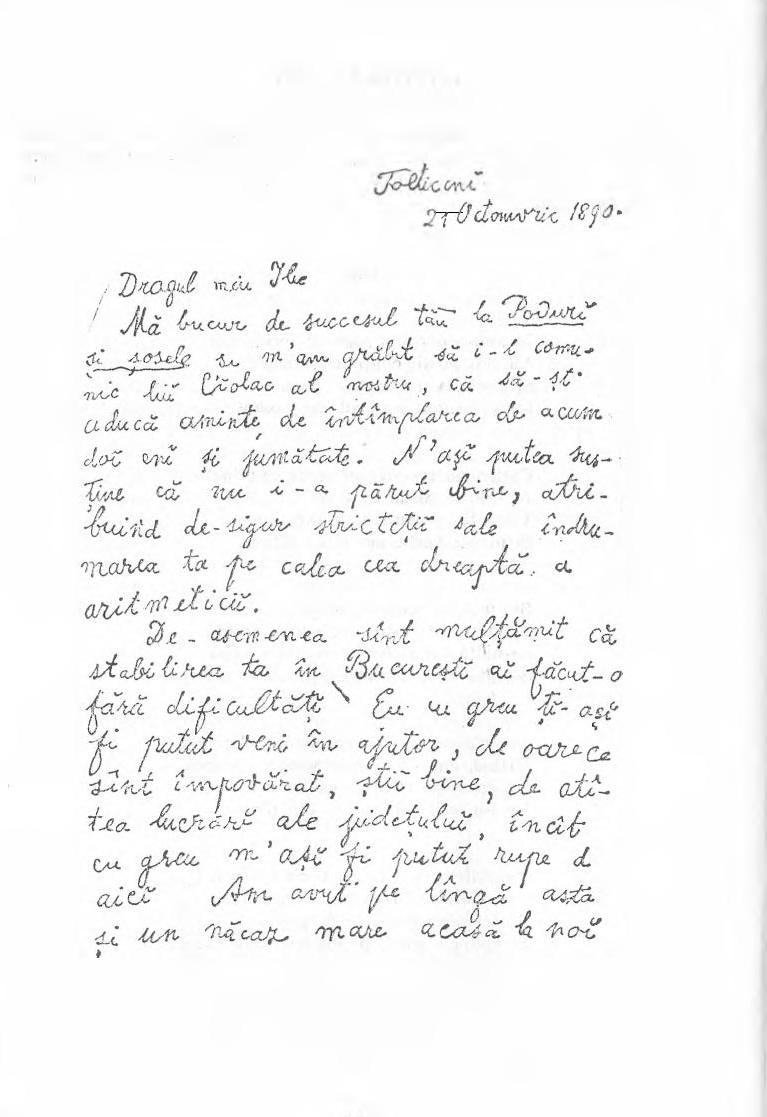 Folticenĭ
21 Octomvrie 1890.
Dragul meu Ilie
Mă bucur de succesul tău la Podurĭ
și șosele și m'am grăbit să i-l comu-
nic luĭ Cĭolac al nostru, că să-șĭ
aducă aminte de întîmplarea de acum
doĭ anĭ și jumătate. N'așĭ putea sus-
ține că nu i-a părut bine, atri-
buind de-sigur strictețiĭ sale îndru-
marea ta pe calea cea dreaptă a
aritmeticiĭ.
De-asemenea sînt mulțămit că
stabilirea ta în Bucureștĭ aĭ făcut-o
fără dificultățĭ Eu cu greu țĭ-așĭ
fi putut veni în ajutor, de oarece
sînt împovărat, știĭ bine, de atî-
tea lucrărĭ ale județuluĭ, încît
cu greu m'așĭ fi putut rupe d
aicĭ Am avut pe lîngă asta
și un năcaz mare acasă la noĭ